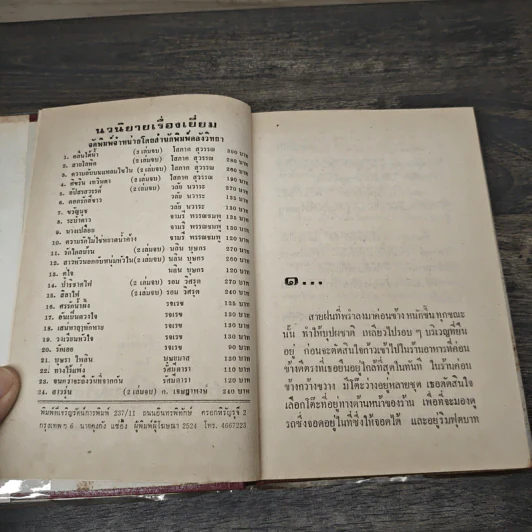 นวนิยายเรื่องเยี่ยม
จัดพิมพ์จำหน่ายโดยสำนักพิมพ์คลังวิทยา
1. คลื่นใต้น้ำ (2 เล่มจบ) โสภาค สุวรรณ บาท
2. สายโลหิต (2 เล่มจบ) โสภาค สุวรรณ 250 บาท
3. ความลับบน (2 เล่มจบ) โสภาค สุวรรณ 280 บาท
4. (2 เล่มจบ) โสภาค สุวรรณ 190 บาท
5. (2 เล่มจบ) วลัย นวาระ 270 บาท
6. วลัย นวาระ 130 บาท
7. ขวัญนุช วลัย นวาระ 135 บาท
8. ระบำดาว จามรี พรรณชมพู 130 บาท
9. นางเปลือย จามรี พรรณชมพู 130 บาท
10. ความรักไม่ใช่หยาดน้ำค้าง จามรี พรรณชมพู 120 บาท
11. รักไกลบ้าน (2 เล่มจบ) นลิน บุษกร 270 บาท
12. สาวห้วนอกกับหนุ่มหัวใน (2 เล่มจบ) นลิน บุษกร 210 บาท
13. คู่ใจ นลิน บุษกร 130 บาท
14. (2 เล่มจบ) รอม วิศรุต 270 บาท
15. ลีลาไฟ (2 เล่มจบ) รอม วิศรุต 240 บาท
16. รจเรข 135 บาท
17. รจเรข 130 บาท
18. เสน่หาฤๅหักหาย รจเรข 110 บาท
19. วงเวียนหัวใจ รจเรข 120 บาท
20. รักเลย รจเรข 90 บาท
21. บุษรา ไพลิน บุษบามาส 130 บาท
22. ทางโรมทั้ง รัศมีดารา 110 บาท
23. จนกว่าจะถึงวันที่จากกัน รัศมีดารา 130 บาท
24. สาวรุ่น (2 เล่มจบ) ก. เจษฎาพงษ์ 240 บาท
พิมพ์ที่เจริญรัตน์การพิมพ์ 237/11 ถนนอินทรพิทักษ์ ตรอกหิรัญรูจี 2
กรุงเทพฯ 6 นายคุงฮัง แซ่อึ้ง ผู้พิมพ์ผู้โฆษณา 2524 โทร. 4667223
๑...
สายฝนที่พร่างลงมาค่อนข้างหนักขึ้นทุกขณะ
นั้น ทำให้บุปผชาติ เหลียวไปรอบ ๆ บริเวณที่ยืน
อยู่ ก่อนจะตัดสินใจก้าวเข้าไปในร้านอาหารที่ค่อน
ข้างดีตรงที่เธอยืนอยู่ใกล้ที่สุดในทันที ในร้านค่อน
ข้างกว้างขวาง มีโต๊ะว่างอยู่หลายชุด เธอตัดสินใจ
เลือกโต๊ะที่อยู่ทางด้านหน้าของร้าน เพื่อที่จะมองดู
รถซึ่งจอดอยู่ในที่ซึ่งให้จอดได้ และอยู่ริมฟุตบาท